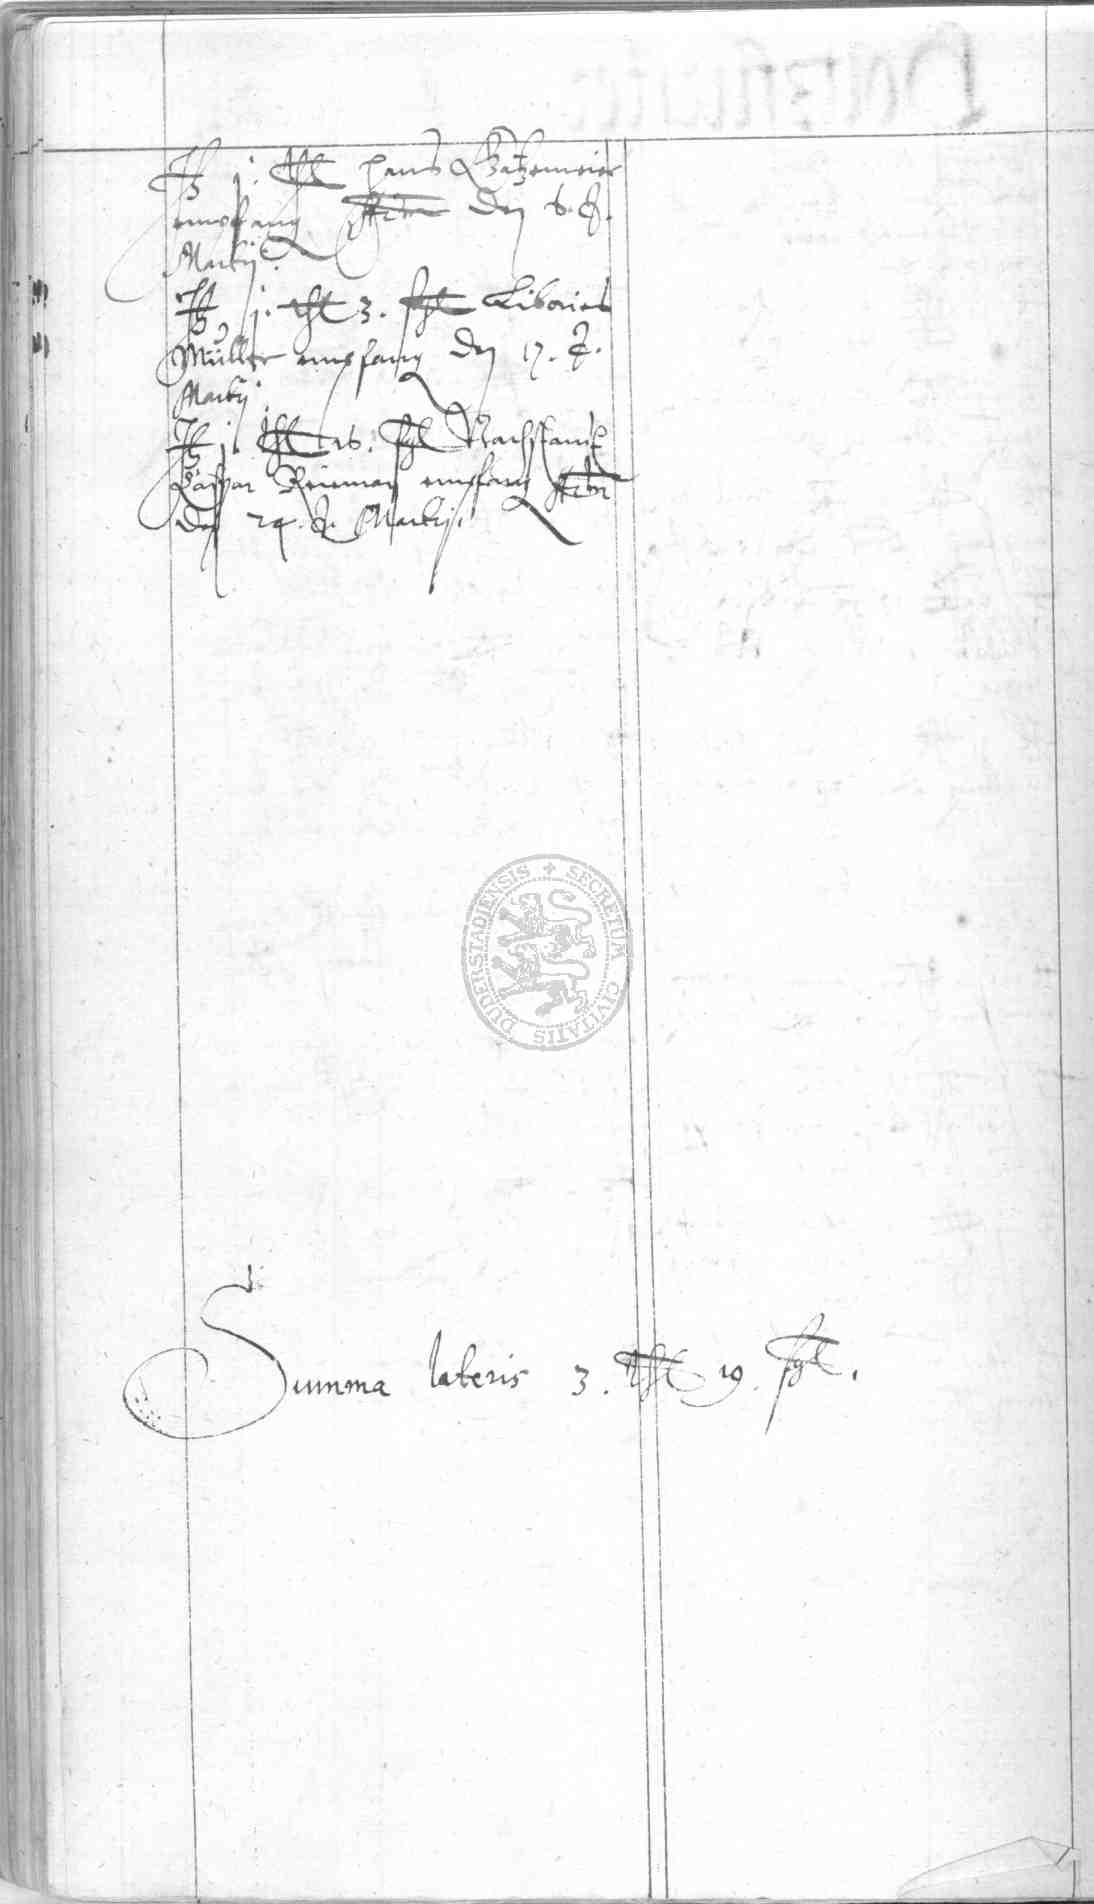 It j. thl Hans Gatzemeier
empfang den 6. d.
Martij.
It j. thl 3. ßgl Liborius
Müller empfang den 17. d.
Martij
It j. thl 16. ßgl Nachstand
Caspar empfang
den 24. d. Martij.
Summa lateris 3. thl 19. ßgl.
SECRETUM CIVITATIS DUDERSTADIENSIS